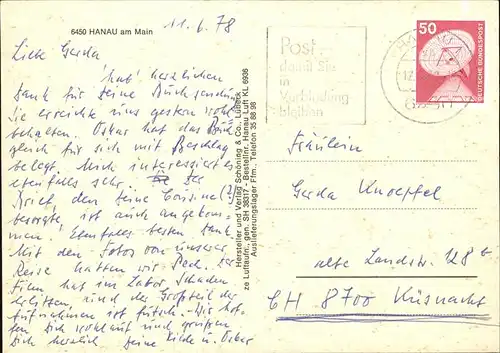 6450 HANAU am Main
11.6.78
Liebe Gerda,
hab' herzlichen
Dank für Deine Buchsendung.
Sie erreichte uns gestern wohl-
behalten. Oskar hat das Buch
gleich für sich mit Beschlag
belegt. Mich interessiert es
ebenfalls sehr. Der
Brief, den Deine Cousine (?)
besorgte, ist auch angekom-
men. Ebenfalls besten Dank.
Mit den Fotos von unserer
Reise hatten wir Pech. Der
Film hat im Labor Schaden
erlitten, und der Großteil der
Aufnahmen ist futsch. Wir hof-
fen Dich wohlauf und grüßen
Dich herzlich Deine Hilde u. Oskar
Hersteller und Verlag Schöning & Co., Lübeck
ze Luftaufn., gen. SH 38317 • Bestellnr. Hanau Luft KL 6936
Auslieferungslager Ffm., Telefon 35 88 98
Post,
damit Sie
in
Verbindung
bleiben
50
DEUTSCHE BUNDESPOST
Fräulein
Gerda Knoepfel
alte Landstr. 128 b
CH 8700 Küsnacht